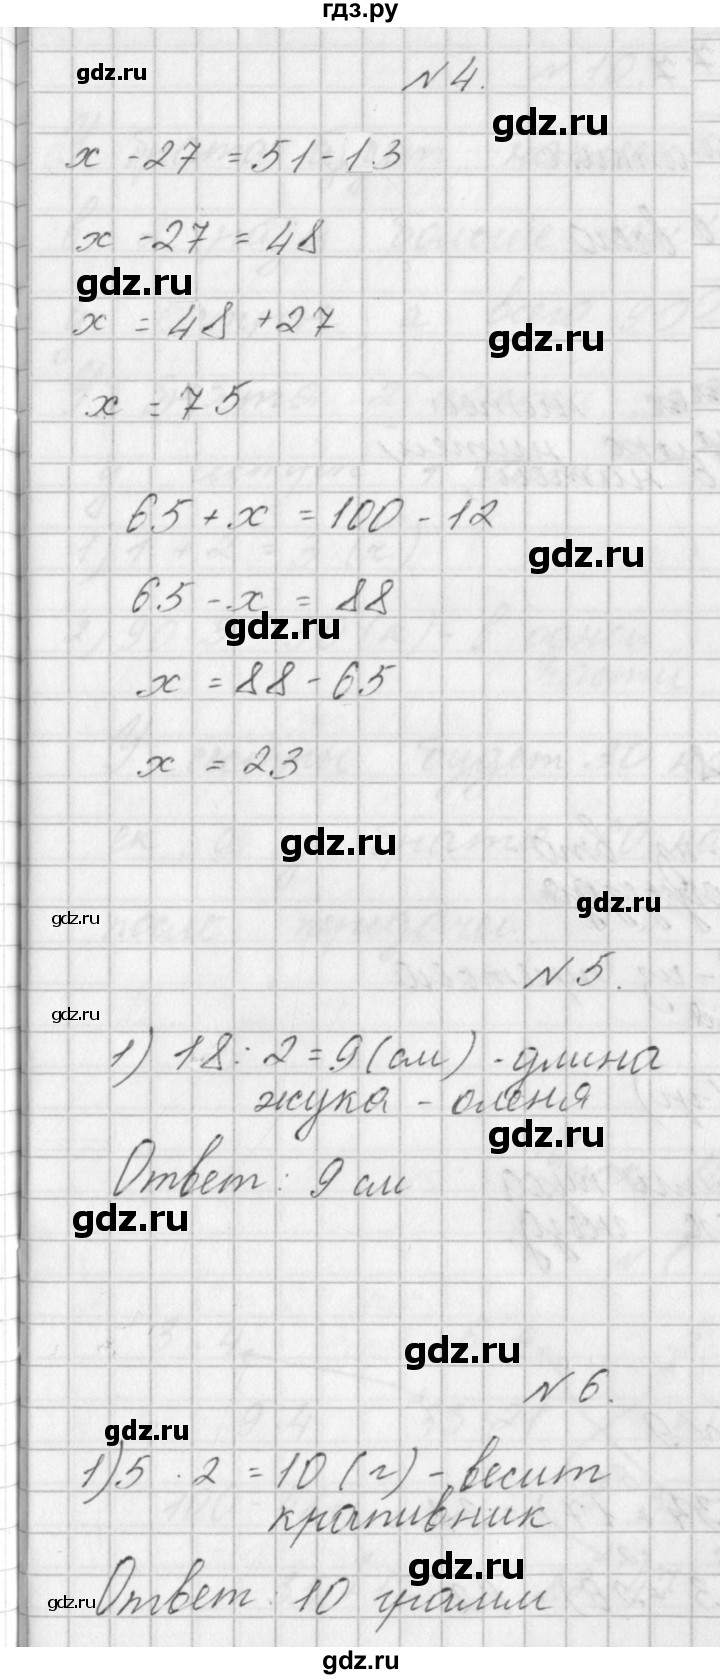 гдз.ру
gdz.ru
N 4.
gdz.ru
x - 27 = 51 - 13
x - 27 = 48
gdz.ru
x = 48 + 27
gdz.ru
x = 75
65 + x = 100 - 12
gdz.ru
65 - x = 88
gdz.ru
x = 88 - 65
x = 23
gdz.ru
gdz.ru
gdz.ru
N 5.
gdz.ru
1) 18 : 2 = 9 (см) - длина
жука - оленя
gdz.ru
Ответ: 9 см
gdz.ru
gdz.ru
N 6.
gdz.ru
1) 5 · 2 = 10 (г) - весит
крапивник
gdz.ru
Ответ: 10 грамм
gdz.ru
gdz.ru